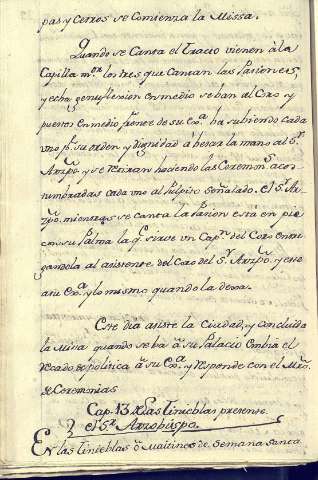 pas y Cerros se Comienna la Missa.
Quando se Canta el Tracto vienen à la
Capilla m.or los tres que Cantan las Pasiones,
y echa genuflexion en medio se ban al Coro y
puestos en medio de su Ex.a ha subiendo cada
vno p.r su orden y dignidad â besar la mano al S.r
Arzpo. y se retiran haciendo las Ceremon.s acos-
tumbradas cada vno al Pulpito señalado. el S.r Ar-
zpo. mientras se canta la Pasion està en pie
con su Palma la q.e sirve vn Cap.n del Coro entre-
gandola al asistente del Coro del S.r Arzpo. y este
a su Ex.a y lo mismo quando la dexa.
Este dia asiste la Ciudad, y concluida
la Missa quando se ba â su Palacio embia el
recado de politica â su Ex.a y responde con el M.ro
de Ceremonias
Cap. 13 de las Tinieblas presente
el S.r Arzobispo.
En las Tinieblas ô Maitines de Semana Santa